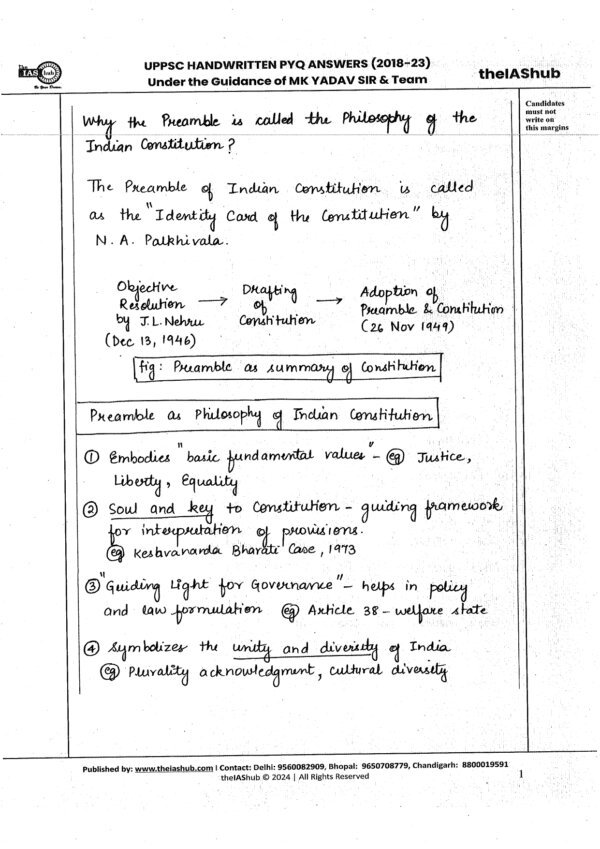 The
IAS hub
Be Your Dream
UPPSC HANDWRITTEN PYQ ANSWERS (2018-23)
Under the Guidance of MK YADAV SIR & Team
theIAShub
Candidates
must not
write on
this margins
Why the Preamble is called the Philosophy of the
Indian Constitution?
The Preamble of Indian Constitution is called
as the "Identity Card of the Constitution" by
N. A. Palkhivala.
Objective
Resolution
by J.L. Nehru
(Dec 13, 1946)
→ Drafting
of
Constitution
→ Adoption of
Preamble & Constitution
(26 Nov 1949)
fig: Preamble as summary of Constitution
Preamble as Philosophy of Indian Constitution
① Embodies "basic fundamental values" - eg Justice,
Liberty, Equality
② Soul and key to Constitution - guiding framework
for interpretation of provisions.
eg Keshvananda Bharati Case, 1973
③ "Guiding Light for Governance" - helps in policy
and law formulation eg Article 38 - welfare state
④ Symbolizes the unity and diversity of India
eg Plurality acknowledgment, cultural diversity
Published by: www.theiashub.com | Contact: Delhi: 9560082909, Bhopal: 9650708779, Chandigarh: 8800019591
theIAShub © 2024 | All Rights Reserved
1